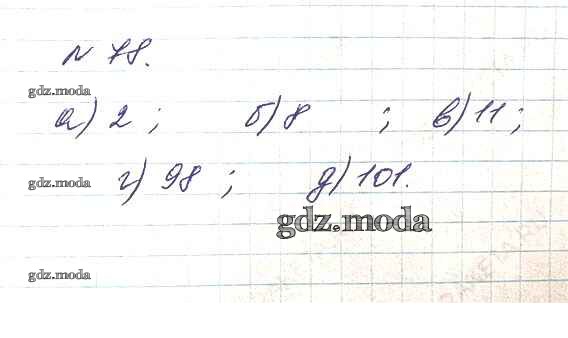 № 78.
gdz.moda
а) 2 ; б) 8 ; в) 11 ;
gdz.moda г) 98 ; д) 101.
gdz.moda
gdz.moda